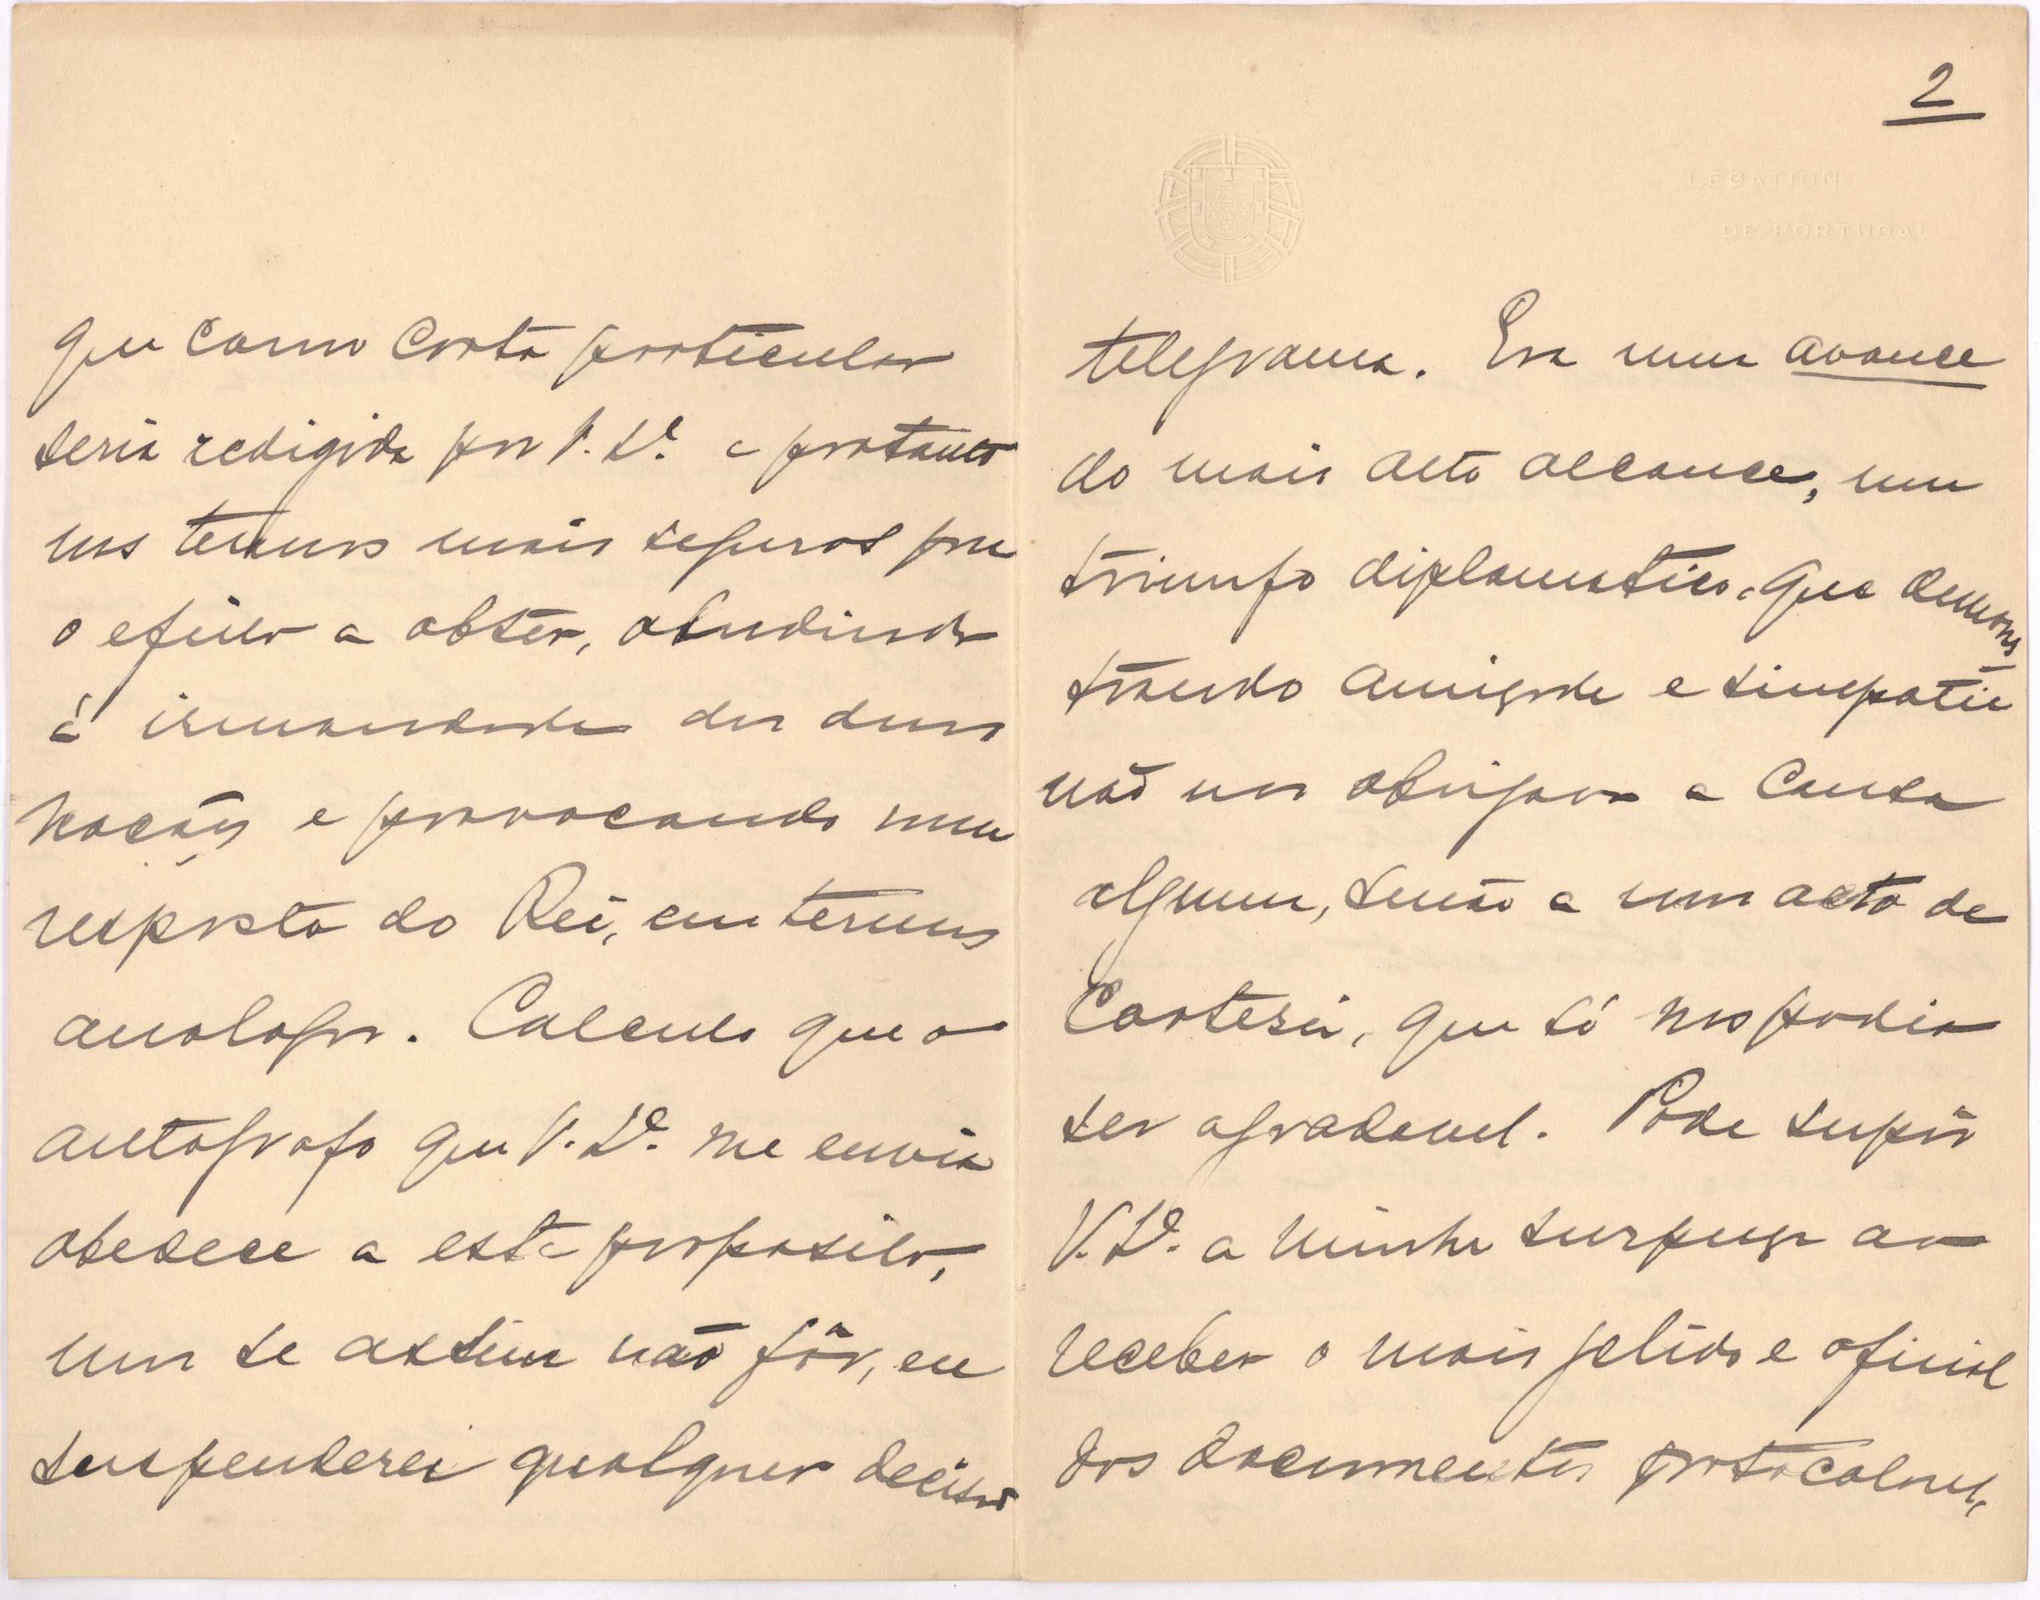 que como carta particular
seria redigida por V. Exª. e portanto
nos termos mais seguros para
o efeito a obter, aludindo
á irmandade das duas
nações e provocando uma
resposta do Rei, em termos
analogos. Calculo que o
autógrafo que V. Exª. me envia
obedece a este proposito,
mas se assim não fôr, eu
suspenderei qualquer decisão
2
LEGATION
DE PORTUGAL
telegrama. Era uma avance
do mais alto alcance, um
triunfo diplomatico, que demons
trando amizade e simpatia
não nos obrigava a causa
alguma, senão a um acto de
Cortesia, que só nos podia
ser agradavel. Pode supôr
V. Exª. a minha surpreza ao
receber o mais gelido e oficial
dos documentos protocolares,